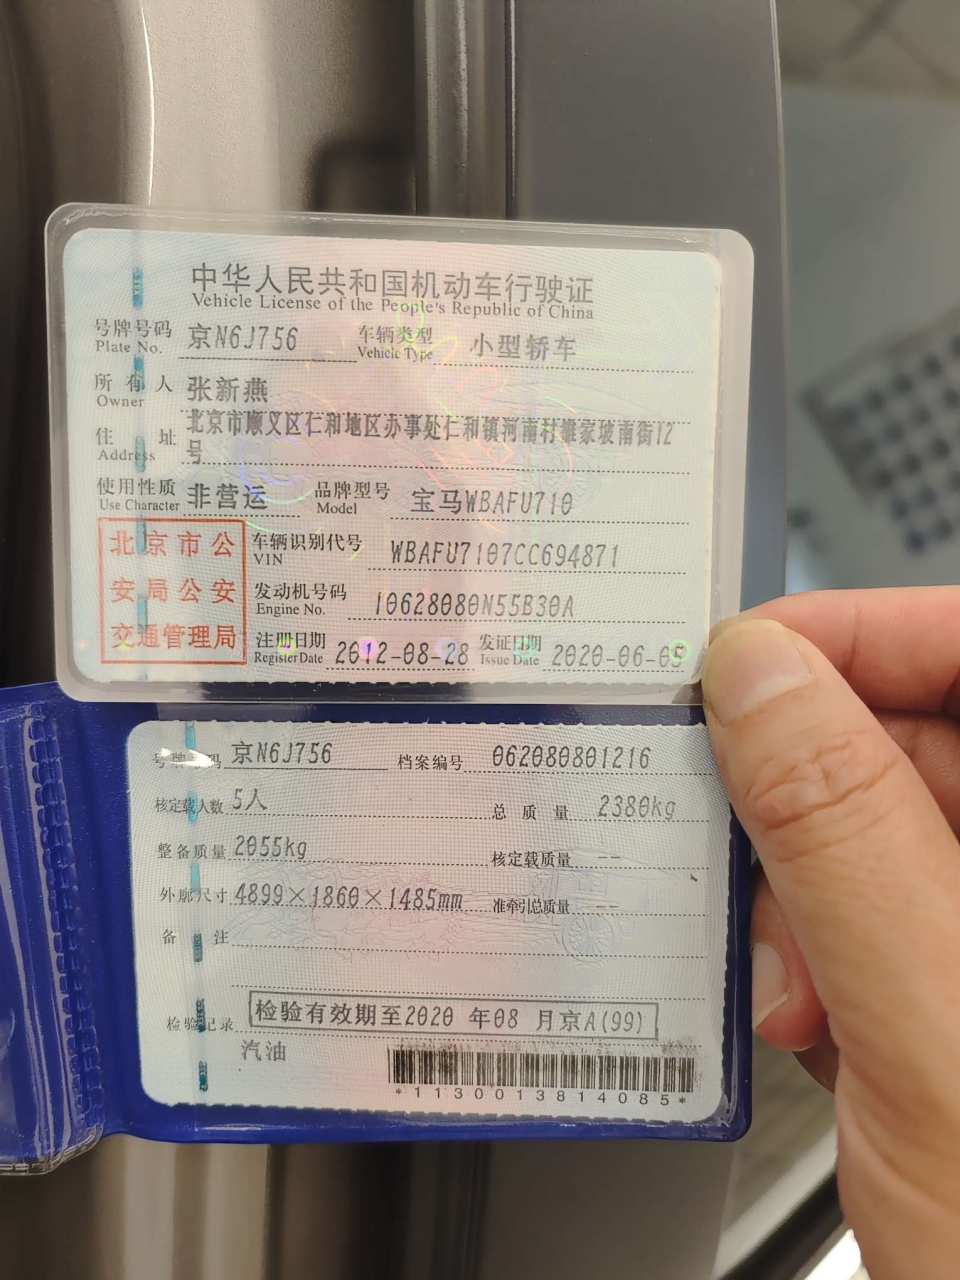 中华人民共和国机动车行驶证
Vehicle License of the People's Republic of China
号牌号码 京N6J756 车辆类型 小型轿车
Plate No. Vehicle Type
所有人 张新燕
Owner
住址 北京市顺义区仁和地区办事处仁和镇河南村雒家坡南街12
Address 号
使用性质 非营运 品牌型号 宝马WBAFU710
Use Character Model
北京市公
安局公安
交通管理局
车辆识别代号 WBAFU7107CC694871
VIN
发动机号码 10628080N55B30A
Engine No.
注册日期 2012-08-28 发证日期 2020-06-05
Register Date Issue Date
号牌号码 京N6J756 档案编号 062080801216
核定载人数 5人 总质量 2380kg
整备质量 2055kg 核定载质量 --
外廓尺寸 4899×1860×1485mm 准牵引总质量 --
备注
检验记录 检验有效期至2020 年08 月京A(99)
汽油
*1130013814085*